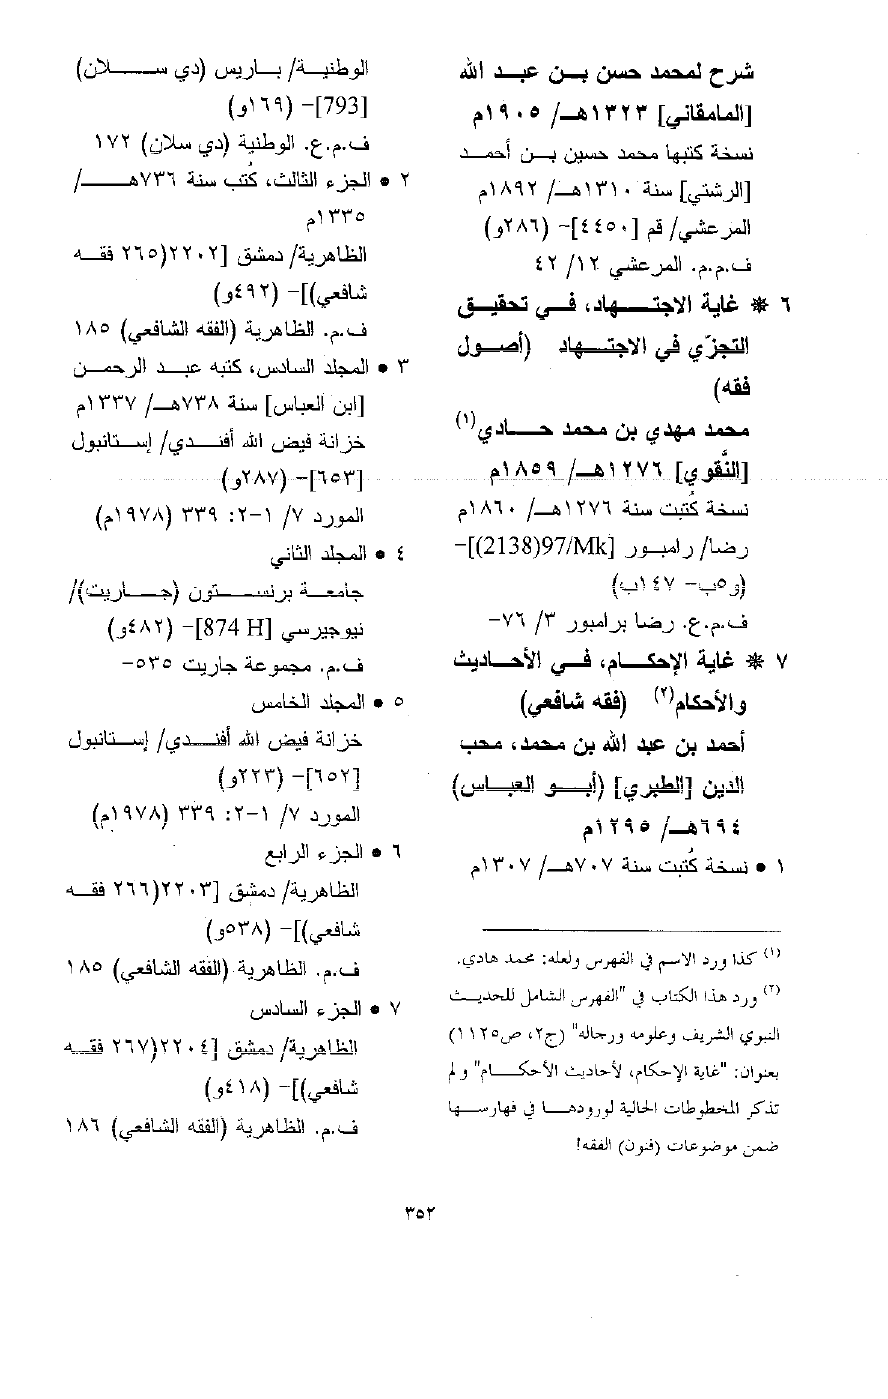 شرح لمحمد حسن بن عبد الله
[المامقاني] ١٣٢٣هـ/ ١٩٠٥م
نسخة كتبها محمد حسين بن أحمد
[الرشتي] سنة ١٣١٠هـ/ ١٨٩٢م
المرعشي/ قم [٤٤٥٠]- (٢٨٦و)
ف.م.م. المرعشي ١٢/ ٤٢
٦ * غاية الاجتهاد، في تحقيق
التجزّي في الاجتهاد (أصول
فقه)
محمد مهدي بن محمد حادي(١)
[النَّقوي] ١٢٧٦هـ/ ١٨٥٩م
نسخة كُتبت سنة ١٢٧٦هـ/ ١٨٦٠م
رضا/ رامبور [97/Mk(2138)]-
(و٥ب- ١٤٧ب)
ف.م.ع. رضا برامبور ٣/ ٧٦-
٧ * غاية الإحكام، في الأحاديث
والأحكام(٢) (فقه شافعي)
أحمد بن عبد الله بن محمد، محب
الدين [الطبري] (أبو العباس)
٦٩٤هـ/ ١٢٩٥م
١ • نسخة كُتبت سنة ٧٠٧هـ/ ١٣٠٧م
(١) كذا ورد الاسم في الفهرس ولعله: محمد هادي.
(٢) ورد هذا الكتاب في "الفهرس الشامل للحديث
النبوي الشريف وعلومه ورجاله" (ج٢، ص١١٢٥)
بعنوان: "غاية الإحكام، لأحاديث الأحكام" ولم
تذكر المخطوطات الحالية لورودها في فهارسها
ضمن موضوعات (فنون) الفقه!
الوطنية/ باريس (دي سلان)
[793]- (١٦٩و)
ف.م.ع. الوطنية (دي سلان) ١٧٢
٢ • الجزء الثالث، كُتب سنة ٧٣٦هـ/
١٣٣٥م
الظاهرية/ دمشق [٢٢٠٢(٢٦٥ فقه
شافعي)]- (٤٩٢و)
ف.م. الظاهرية (الفقه الشافعي) ١٨٥
٣ • المجلد السادس، كتبه عبد الرحمن
[ابن العباس] سنة ٧٣٨هـ/ ١٣٣٧م
خزانة فيض الله أفندي/ إستانبول
[٦٥٣]- (٢٨٧و)
المورد ٧/ ١-٢: ٣٣٩ (١٩٧٨م)
٤ • المجلد الثاني
جامعة برنستون (جاريت)/
نيوجيرسي [874 H]- (٤٨٢و)
ف.م. مجموعة جاريت ٥٣٥-
٥ • المجلد الخامس
خزانة فيض الله أفندي/ إستانبول
[٦٥٢]- (٢٢٣و)
المورد ٧/ ١-٢: ٣٣٩ (١٩٧٨م)
٦ • الجزء الرابع
الظاهرية/ دمشق [٢٢٠٣(٢٦٦ فقه
شافعي)]- (٥٣٨و)
ف.م. الظاهرية (الفقه الشافعي) ١٨٥
٧ • الجزء السادس
الظاهرية/ دمشق [٢٢٠٤(٢٦٧ فقه
شافعي)]- (٤١٨و)
ف.م. الظاهرية (الفقه الشافعي) ١٨٦
٣٥٢